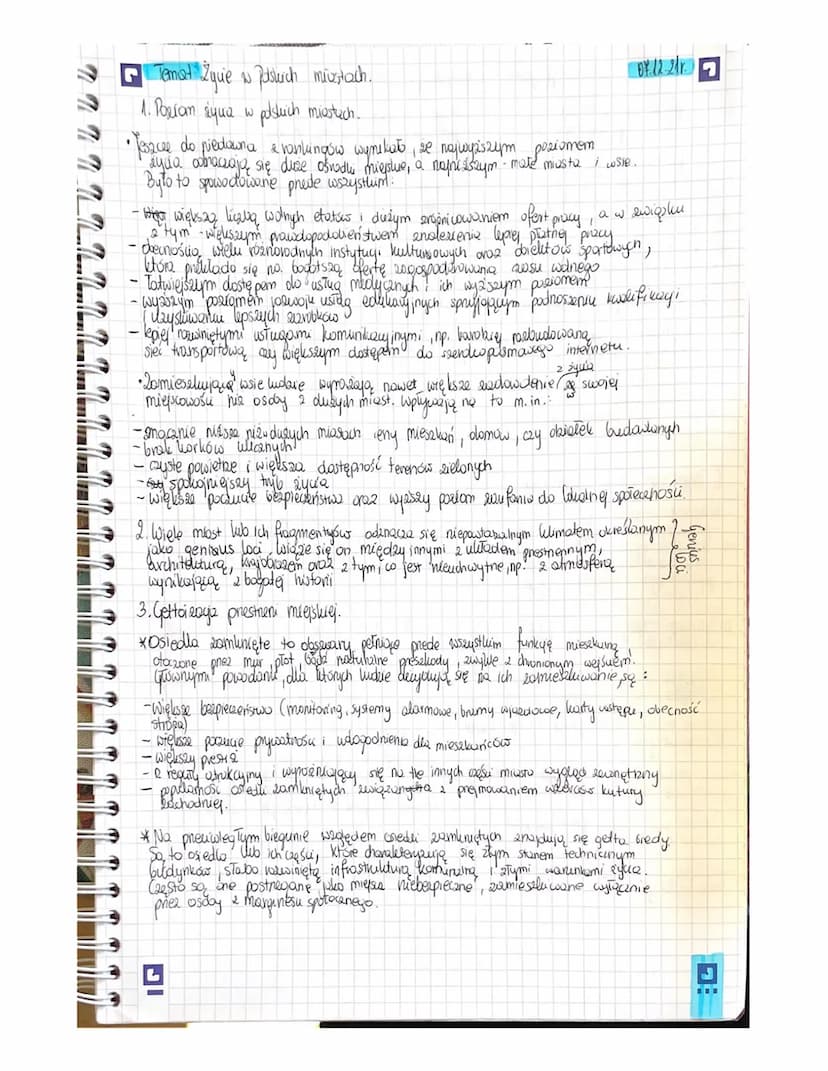 Temat: Życie w Polskich miastach. 07.12.21r
1. Poziom życia w polskich miastach.
• Jeszcze do niedawna z rankingów wynikało, że najwyższym poziomem
życia odznaczają się duże ośrodki miejskie, a najniższym - małe miasta i wsie.
Było to spowodowane przede wszystkim:
- większą liczbą wolnych etatów i dużym zróżnicowaniem ofert pracy, a w związku
z tym - większym prawdopodobieństwem znalezienia lepiej płatnej pracy
- obecnością wielu różnorodnych instytucji kulturowych oraz obiektów sportowych,
która przekłada się na bogatszą ofertę zagospodarowania czasu wolnego
- Łatwiejszym dostępem do usług medycznych i ich wyższym poziomem
- wyższym poziomem rozwoju usług edukacyjnych sprzyjającym podnoszeniu kwalifikacji
i uzyskiwaniu lepszych zarobków
- lepiej rozwiniętymi usługami komunikacyjnymi, np. bardziej rozbudowaną
siecią transportową czy większym dostępem do szerokopasmowego internetu.
• Zamieszkujący wsie ludzie wyrażają nawet większe zadowolenie z życia w swojej
miejscowości niż osoby z dużych miast. Wpływają na to m.in.:
- znacznie niższe niż w dużych miastach ceny mieszkań, domów, czy działek budowlanych
- brak korków ulicznych
- czyste powietrze i większa dostępność terenów zielonych
- spokojniejszy tryb życia
- większe poczucie bezpieczeństwa oraz wyższy poziom zaufania do lokalnej społeczności.
2. Wiele miast lub ich fragmentów odznacza się niepowtarzalnym klimatem określanym
jako genius loci. Wiąże się on między innymi z układem przestrzennym,
architekturą, krajobrazem oraz z tym, co jest nieuchwytne, np. z atmosferą
wynikającą z bogatej historii
Genius
loci
3. Gettoizacja przestrzeni miejskiej.
* Osiedla zamknięte to obszary pełniące przede wszystkim funkcję mieszkalną,
otoczone przez mur, płot, bądź naturalne przeszkody, zwykle z chronionym wejściem.
Głównymi powodami, dla których ludzie decydują się na ich zamieszkiwanie, są:
- Większe bezpieczeństwo (monitoring, systemy alarmowe, bramy wjazdowe, karty wstępu, obecność
stróża)
- większe poczucie prywatności i udogodnienia dla mieszkańców
- większy prestiż
- z reguły atrakcyjny i wyróżniający się na tle innych części miasta wygląd zewnętrzny
- popularność osiedli zamkniętych związana z przejmowaniem wzorców kultury
zachodniej.
* Na przeciwległym biegunie względem osiedli zamkniętych znajdują się getta biedy
Są to osiedla lub ich części, które charakteryzują się złym stanem technicznym
budynków, słabo rozwiniętą infrastrukturą komunalną i złymi warunkami życia.
Często są one postrzegane jako miejsca niebezpieczne, zamieszkiwane wyłącznie
przez osoby z marginesu społecznego.